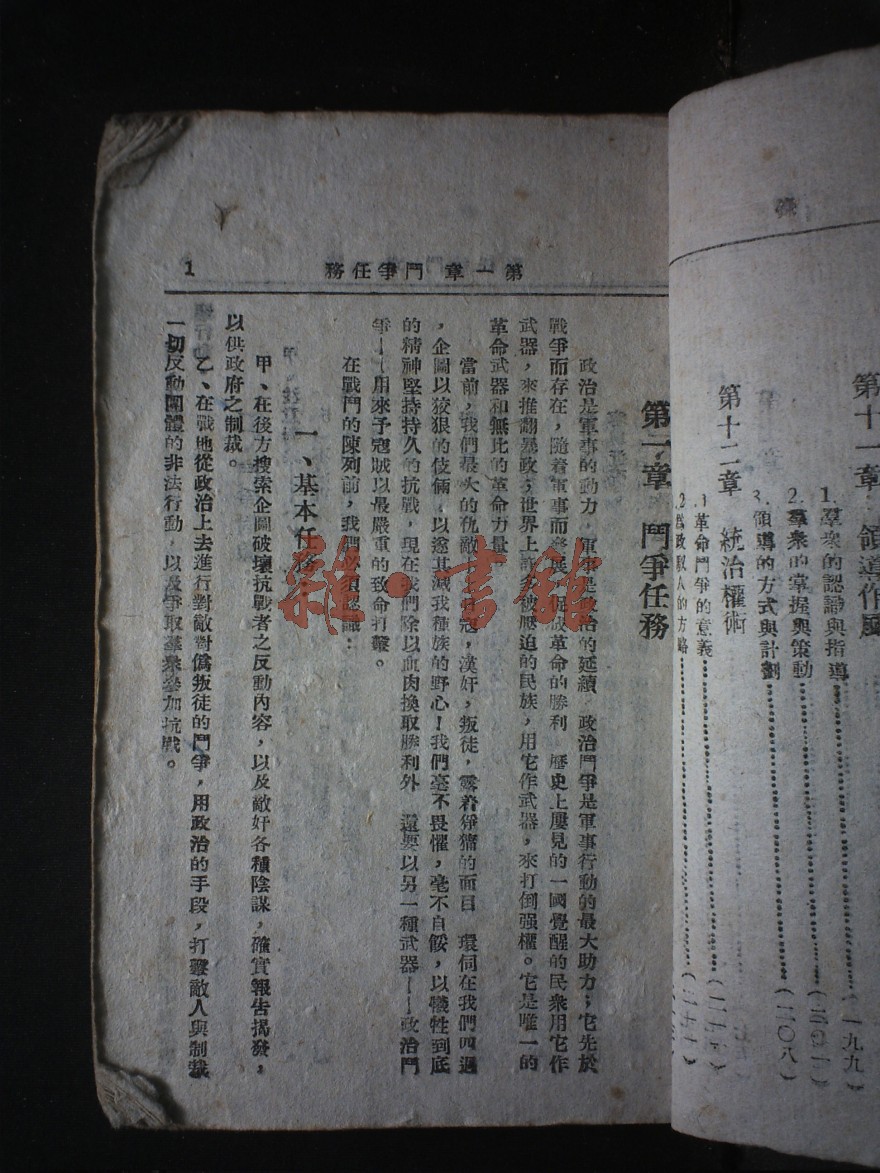 第十一章 領導作風
1. 羣衆的認識與指導……(一九九)
2. 羣衆的掌握與策動……(二〇一)
3. 領導的方式與計劃……(二〇八)
第十二章 統治權術
1 革命鬥爭的意義
2
第一章 鬥爭任務 1
第一章 鬥爭任務
政治是軍事的動力,軍事是政治的延續 政治鬥爭是軍事行動的最大助力;它先於
戰爭而存在,隨着軍事而發展,促成革命的勝利 歷史上屢見的一國覺醒的民衆用它作
武器,來推翻暴政;世界上許多被壓迫的民族,用它作武器,來打倒强權。它是唯一的
革命武器和無比的革命力量
當前,我們最大的仇敵 日寇,漢奸,叛徒,露着猙獰的面目 環伺在我們四週
,企圖以狡狠的伎倆,以遂其滅我種族的野心!我們毫不畏懼,毫不自餒,以犧牲到底
的精神堅持持久的抗戰,現在我們除以血肉換取勝利外 還要以另一種武器——政治鬥
爭——用來予寇賊以最嚴重的致命打擊。
在戰鬥的陳列前,我們必須認識:
一、基本任務
甲、在後方搜索企圖破壞抗戰者之反動內容,以及敵奸各種陰謀,確實報告揭發,
以供政府之制裁。
乙、在戰地從政治上去進行對敵對僞叛徒的鬥爭,用政治的手段,打擊敵人與制裁
一切反動團體的非法行動,以及爭取羣衆參加抗戰。
雜·書館